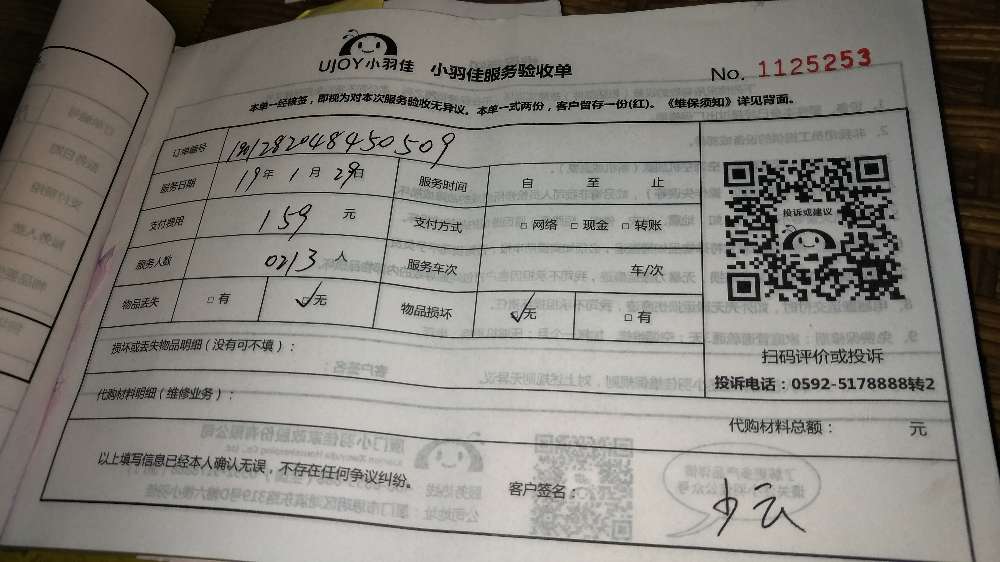 UJOY小羽佳 小羽佳服务验收单 No. 1125253
本单一经核签，即视为对本次服务验收无异议。本单一式两份，客户留存一份(红)。《维保须知》详见背面。
订单编号 1901282048450509
服务日期 19年 1月 29日 服务时间 自 至 止
支付费用 159 元 支付方式 □网络 □现金 □转账
服务人数 0213 人 服务车次 车/次
物品丢失 □有 ☑无 物品损坏 ☑无 □有
投诉或建议
扫码评价或投诉
投诉电话：0592-5178888转2
损坏或丢失物品明细（没有可不填）：
代购材料明细（维修业务）：
代购材料总额： 元
以上填写信息已经本人确认无误，不存在任何争议纠纷。 客户签名：